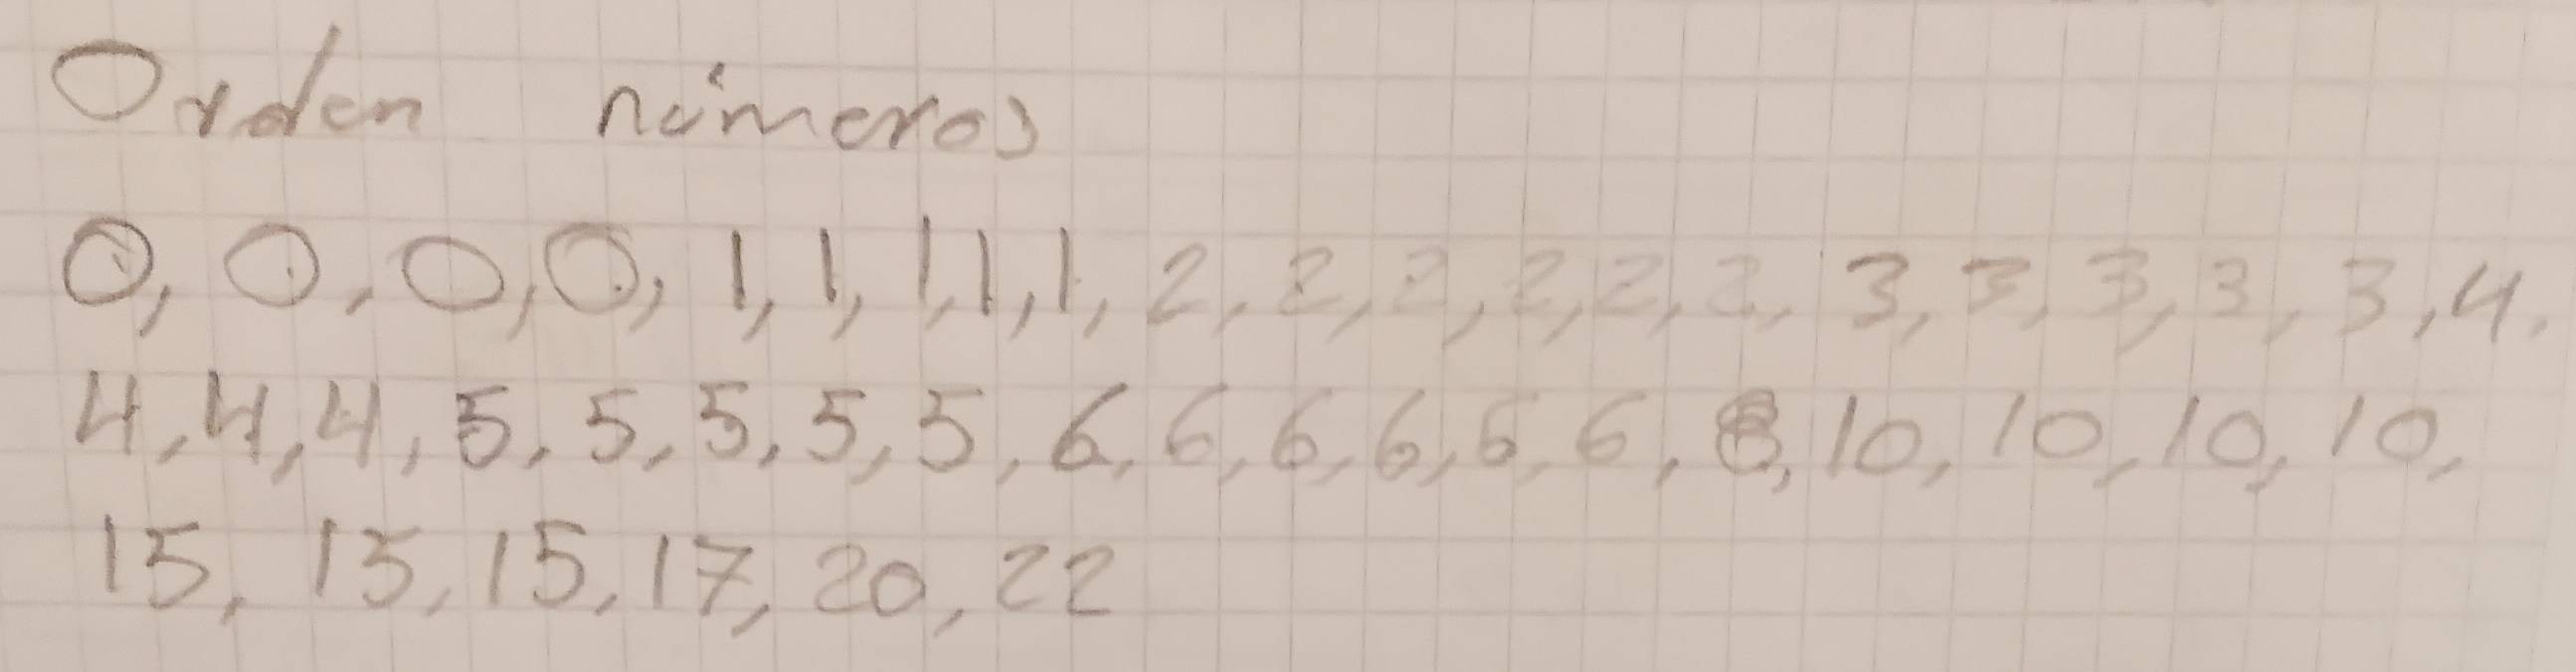 Orden números
0, 0, 0, 0, 1, 1, 1, 1, 1, 2, 2, 2, 2, 2, 2, 3, 3, 3, 3, 3, 4,
4, 4, 4, 5, 5, 5, 5, 5, 6, 6, 6, 6, 6, 6, 8, 10, 10, 10, 10,
15, 15, 15, 17, 20, 22